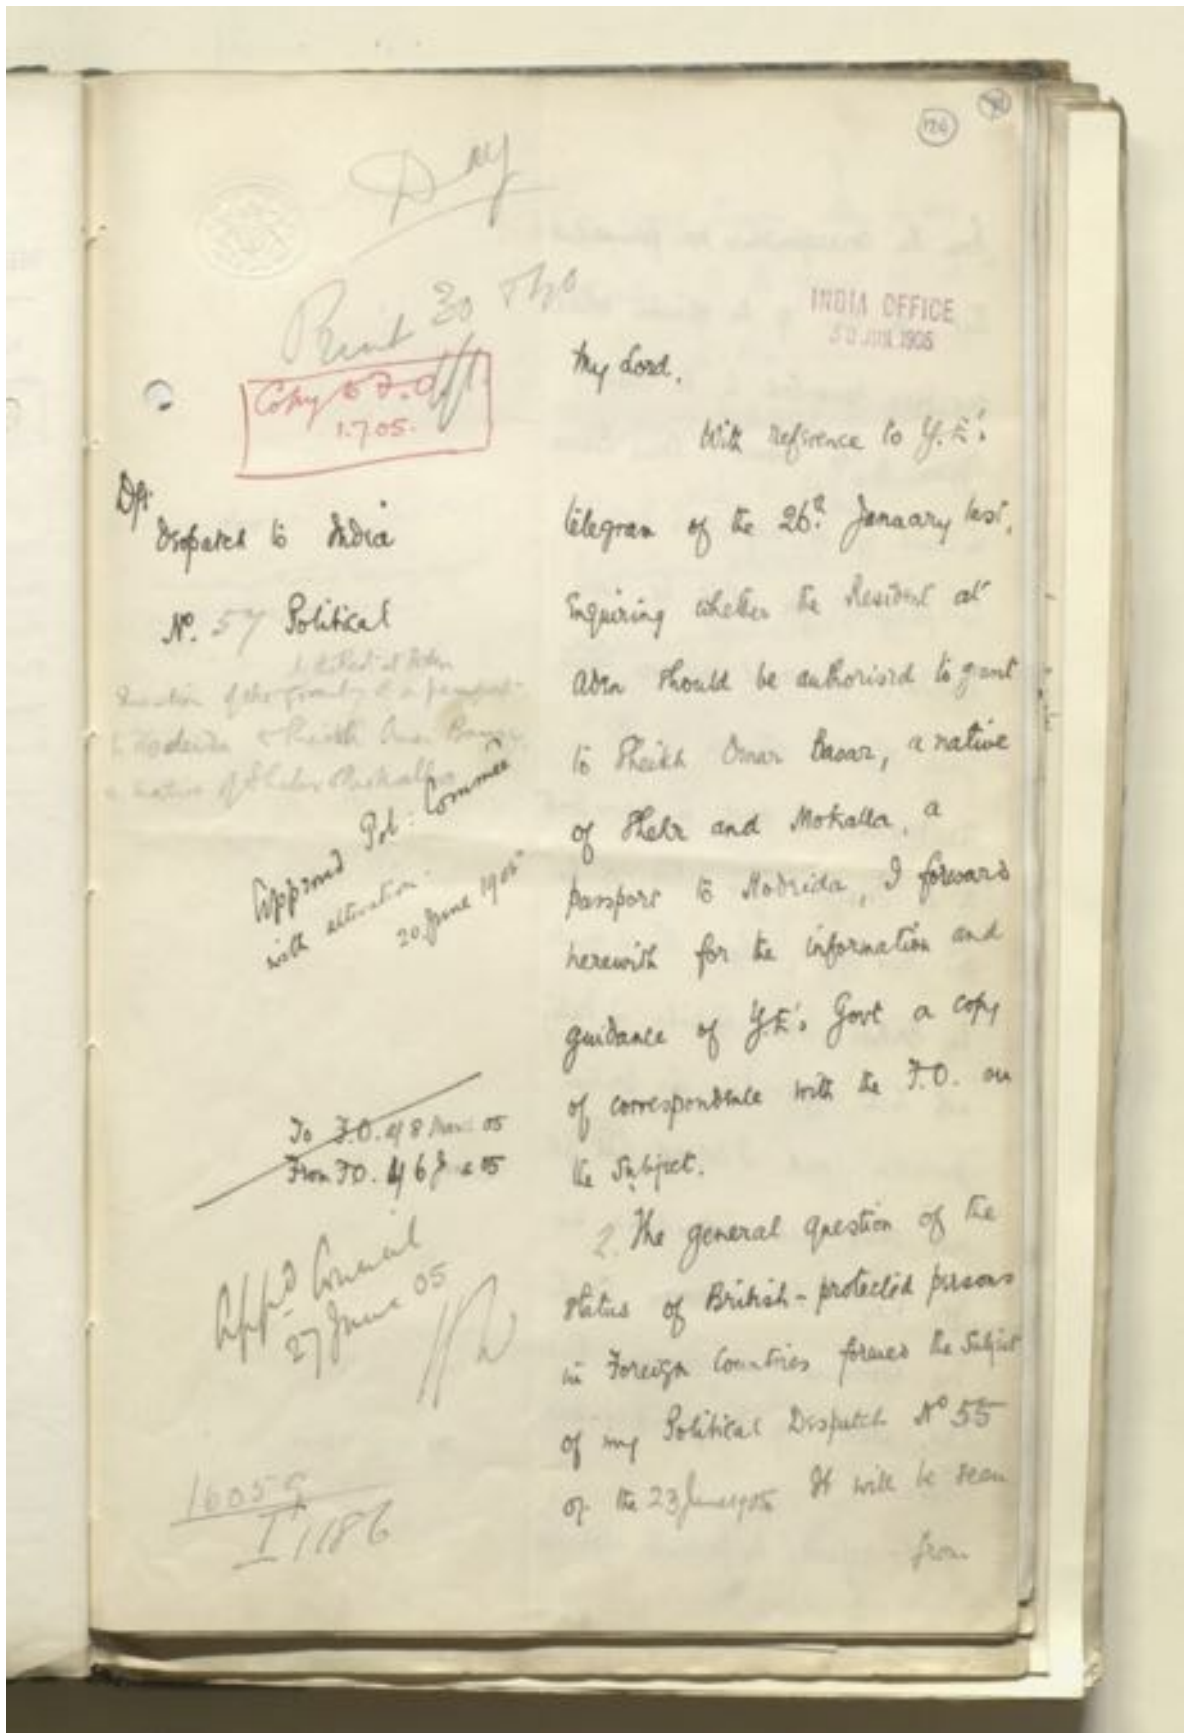 126
INDIA OFFICE
30 JUN 1905
Print 30
Copy to F.O.
1.7.05.
Dft.
Despatch to India
No. 57 Political
to Hodeida to Sheikh Omar
a native of Shehr & Mokalla
Approved Pol: Commee
with alteration.
20 June 1905
To F.O. of 8 05
From F.O. of 6 05
Appd Council
27 June 05
16059
I 1186
My Lord,
With reference to Y.E's
telegram of the 26th. January last,
enquiring whether the Resident at
Aden should be authorised to grant
to Sheikh Omar Basar, a native
of Shehr and Mokalla, a
passport to Hodeida, I forward
herewith for the information and
guidance of Y.E's Govt a copy
of correspondence with the F.O. on
the subject.
2. The general question of the
status of British-protected persons
in Foreign Countries formed the subject
of my Political Despatch No 55
of the 23 June 1905 It will be seen
from